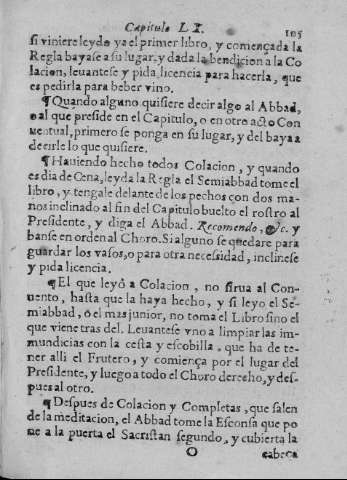 Capitulo LX. 105
si viniere leydo ya el primer libro, y començada la
Regla bayase a su lugar, y dada la bendicion a la Co
lacion, leuantese y pida licencia para hacerla, que
es pedirla para beber vino.
¶Quando alguno quisiere decir algo al Abbad,
o al que preside en el Capitulo, o en otro acto Con
uentual, primero se ponga en su lugar, y del bayaa
decirle lo que quisiere.
¶Hauiendo hecho todos Colacion, y quando
es dia de Cena, leyda la Regla el Semiabbad tome el
libro, y tengale delante de los pechos con dos ma-
nos inclinado al fin del Capitulo buelto el rostro al
Presidente, y diga el Abbad. Recomendo, &c. y
banse en orden al Choro. Si alguno se quedare para
guardar los vasos, o para otra necessidad, inclinese
y pida licencia.
¶El que leyó a Colacion, no sirua al Con-
uento, hasta que la haya hecho, y si leyo el Se-
miabbad, ó el mas junior, no toma el Libro sino el
que viene tras del. Leuantese vno a limpiar las im-
mundicias con la cesta y escobilla, que ha de te-
ner alli el Frutero, y comiença por el lugar del
Presidente, y luego a todo el Choro derecho, y des-
pues al otro.
¶Despues de Colacion y Completas, que salen
de la meditacion, el Abbad tome la Esconsa que po
ne a la puerta el Sacristan segundo, y cubierta la
O cabeça